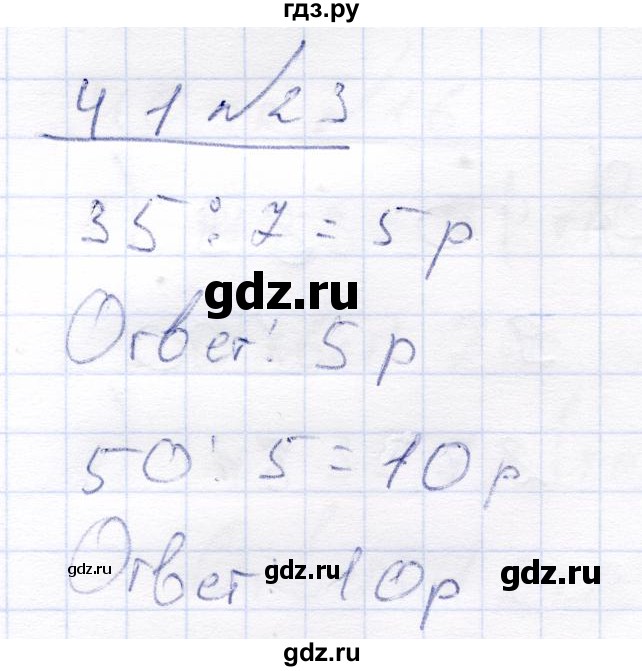 гдз.ру
Ч 1 №23
35 : 7 = 5 р
gdz.ru
Ответ: 5 р
50 : 5 = 10 р
gdz.ru gdz.ru gdz.ru
Ответ: 10 р
gdz.ru